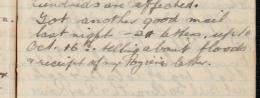 hundreds are affected.
Got another good mail
last night - 20 letters, up to
Oct. 16: telling about floods
& receipt of my letter.